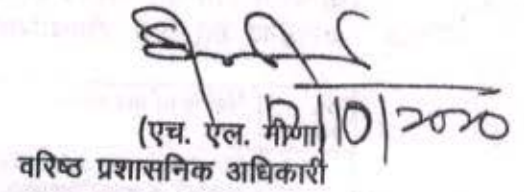 12/10/2020
(एच. एल. मीणा)
वरिष्ठ प्रशासनिक अधिकारी